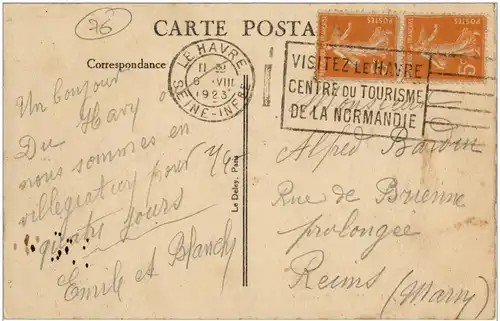 76
CARTE POSTA
Correspondance
LE HAVRE
SEINE-INFRE
11 30
6 VIII
1923
VISITEZ LE HAVRE
CENTRE DU TOURISME
DE LA NORMANDIE
POSTES
5c
Un bonjour
Du Havy
nous sommes en
villegiature pour
quatre jours
Emile et Blanch
Le Deley, Paris
Monsieur
Alfred
Rue de Brienne
prolongée
Reims (Marn)